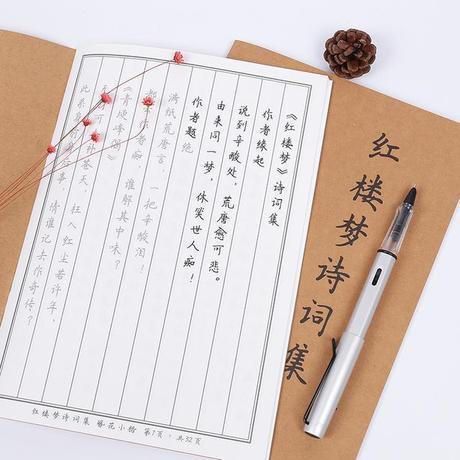 《红楼梦》诗词集
作者缘起
说到辛酸处，荒唐愈可悲。
由来同一梦，休笑世人痴！
作者题绝
满纸荒唐言，一把辛酸泪！
都云作者痴，谁解其中味？
《青埂峰偈》
无材可去补苍天，枉入红尘若许年。
此系身前身后事，倩谁记去作奇传？
红楼梦诗词集 簪花小楷 第1页，共32页
红楼梦诗词集